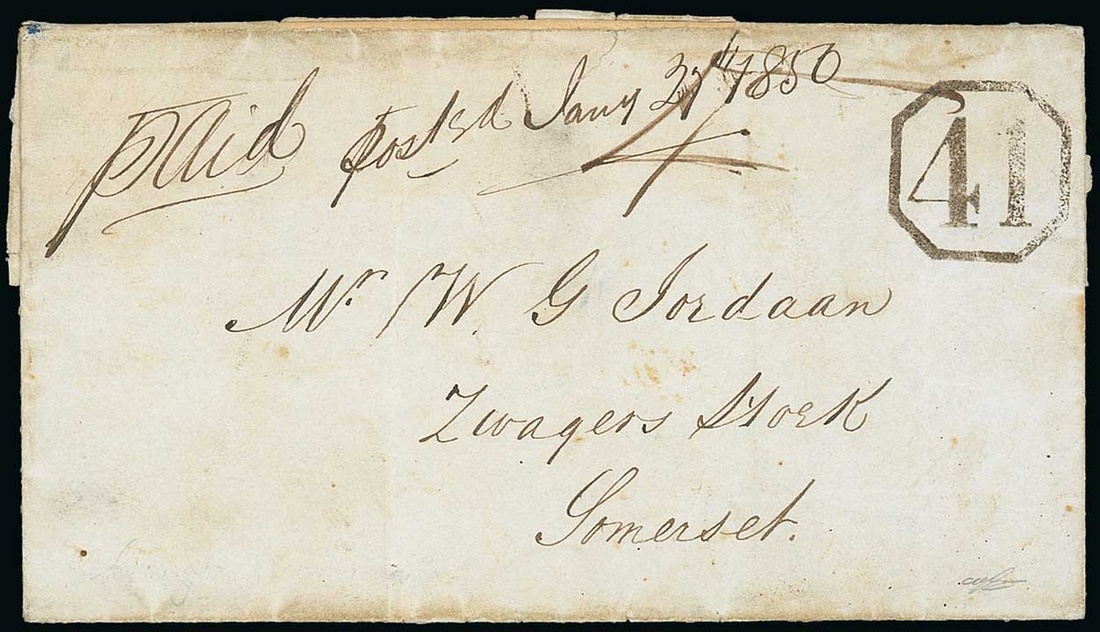 paid posted Jany 1850
4
41
Mr W G Jordaan
Zwagers Hoek
Somerset.